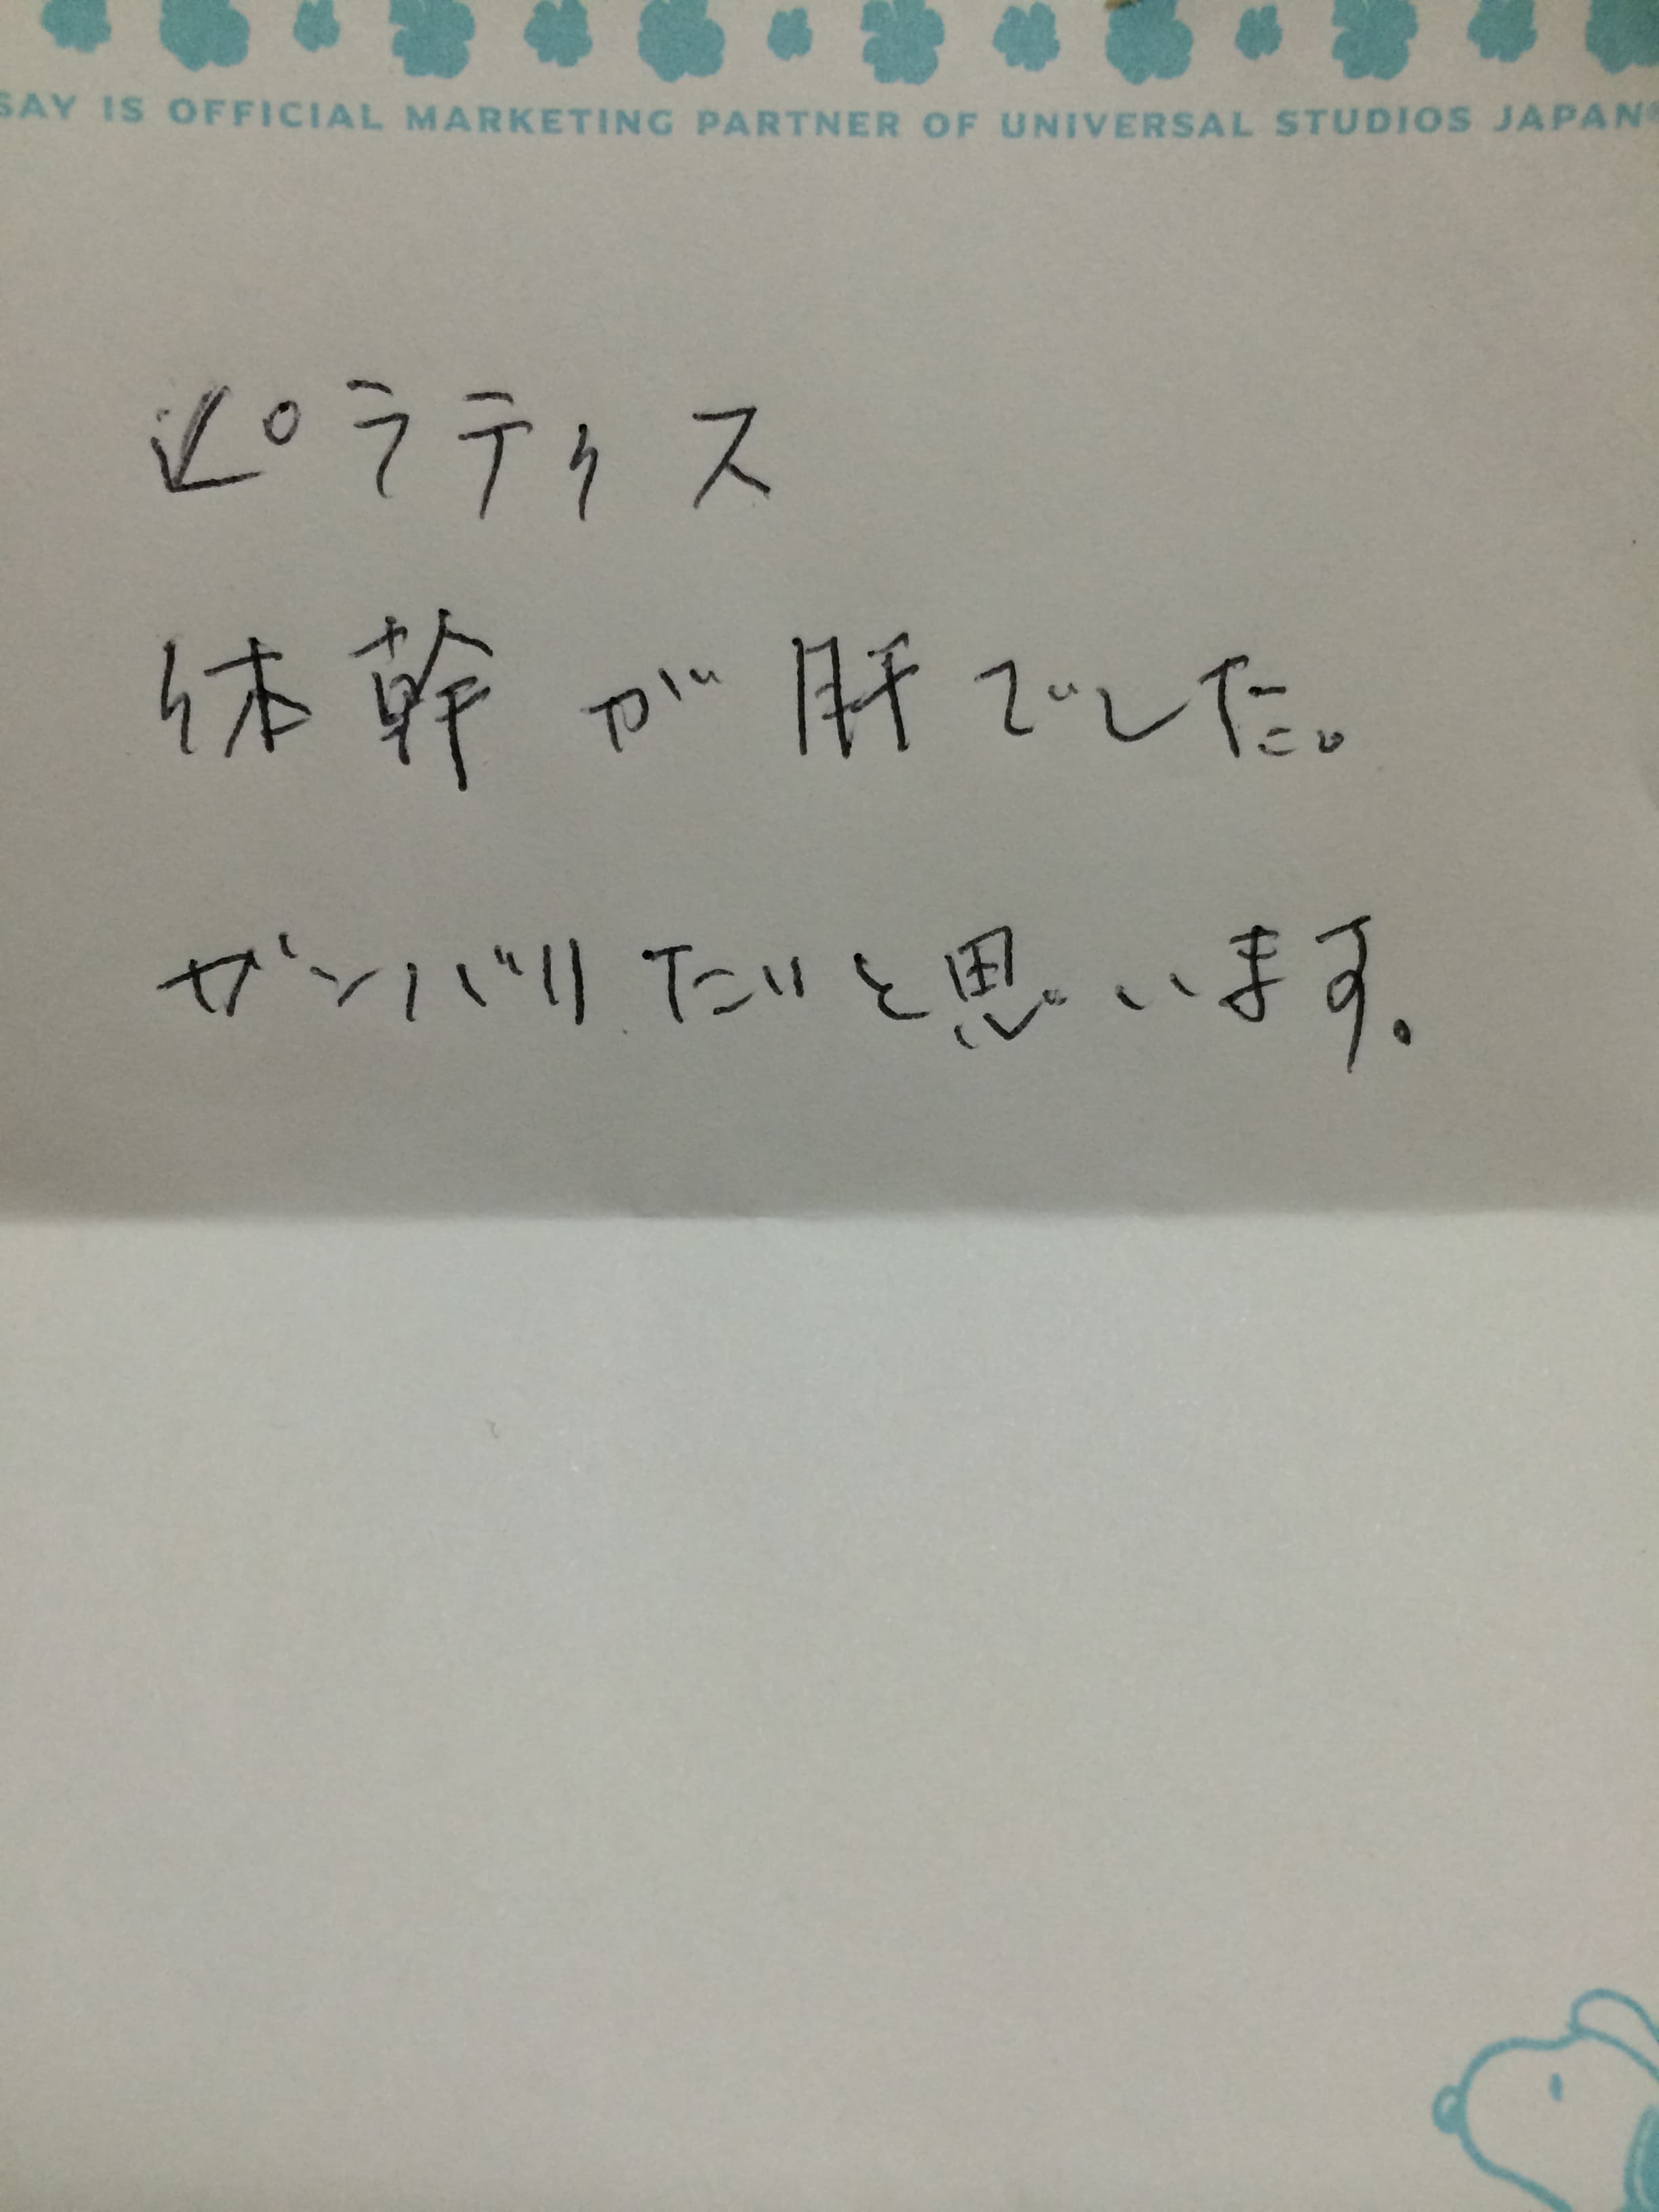 SAY IS OFFICIAL MARKETING PARTNER OF UNIVERSAL STUDIOS JAPAN®
ピラティス
体幹が肝でした。
ガンバリたいと思います。